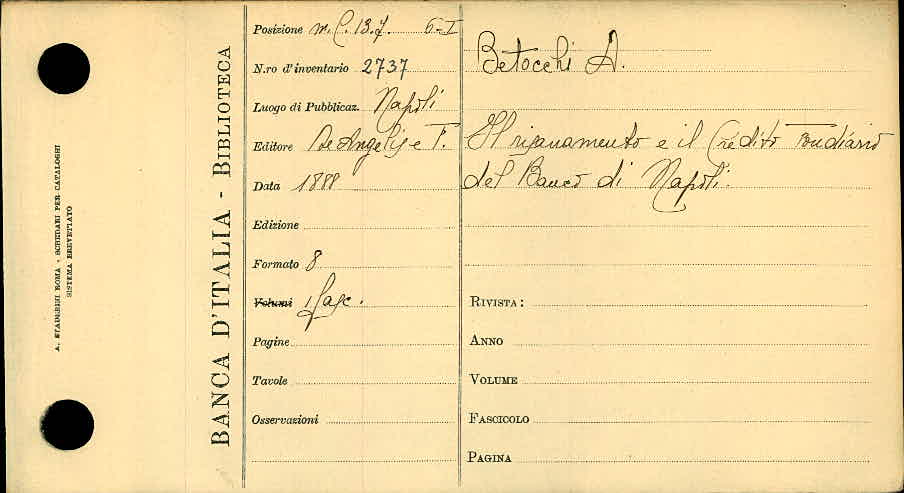 A. STADERINI ROMA - SCHEDARI PER CATALOGHI
SISTEMA BREVETTATO
BANCA D'ITALIA - BIBLIOTECA
Posizione m.C. 13.7. 6-I
N.ro d'inventario 2737
Luogo di Pubblicaz. Napoli
Editore De Angelis e F.
Data 1888
Edizione
Formato 8
Volumi 1 fasc.
Pagine
Tavole
Osservazioni
Betocchi A.
Il risanamento e il Crédito Fondiario
del Banco di Napoli.
RIVISTA:
ANNO
VOLUME
FASCICOLO
PAGINA